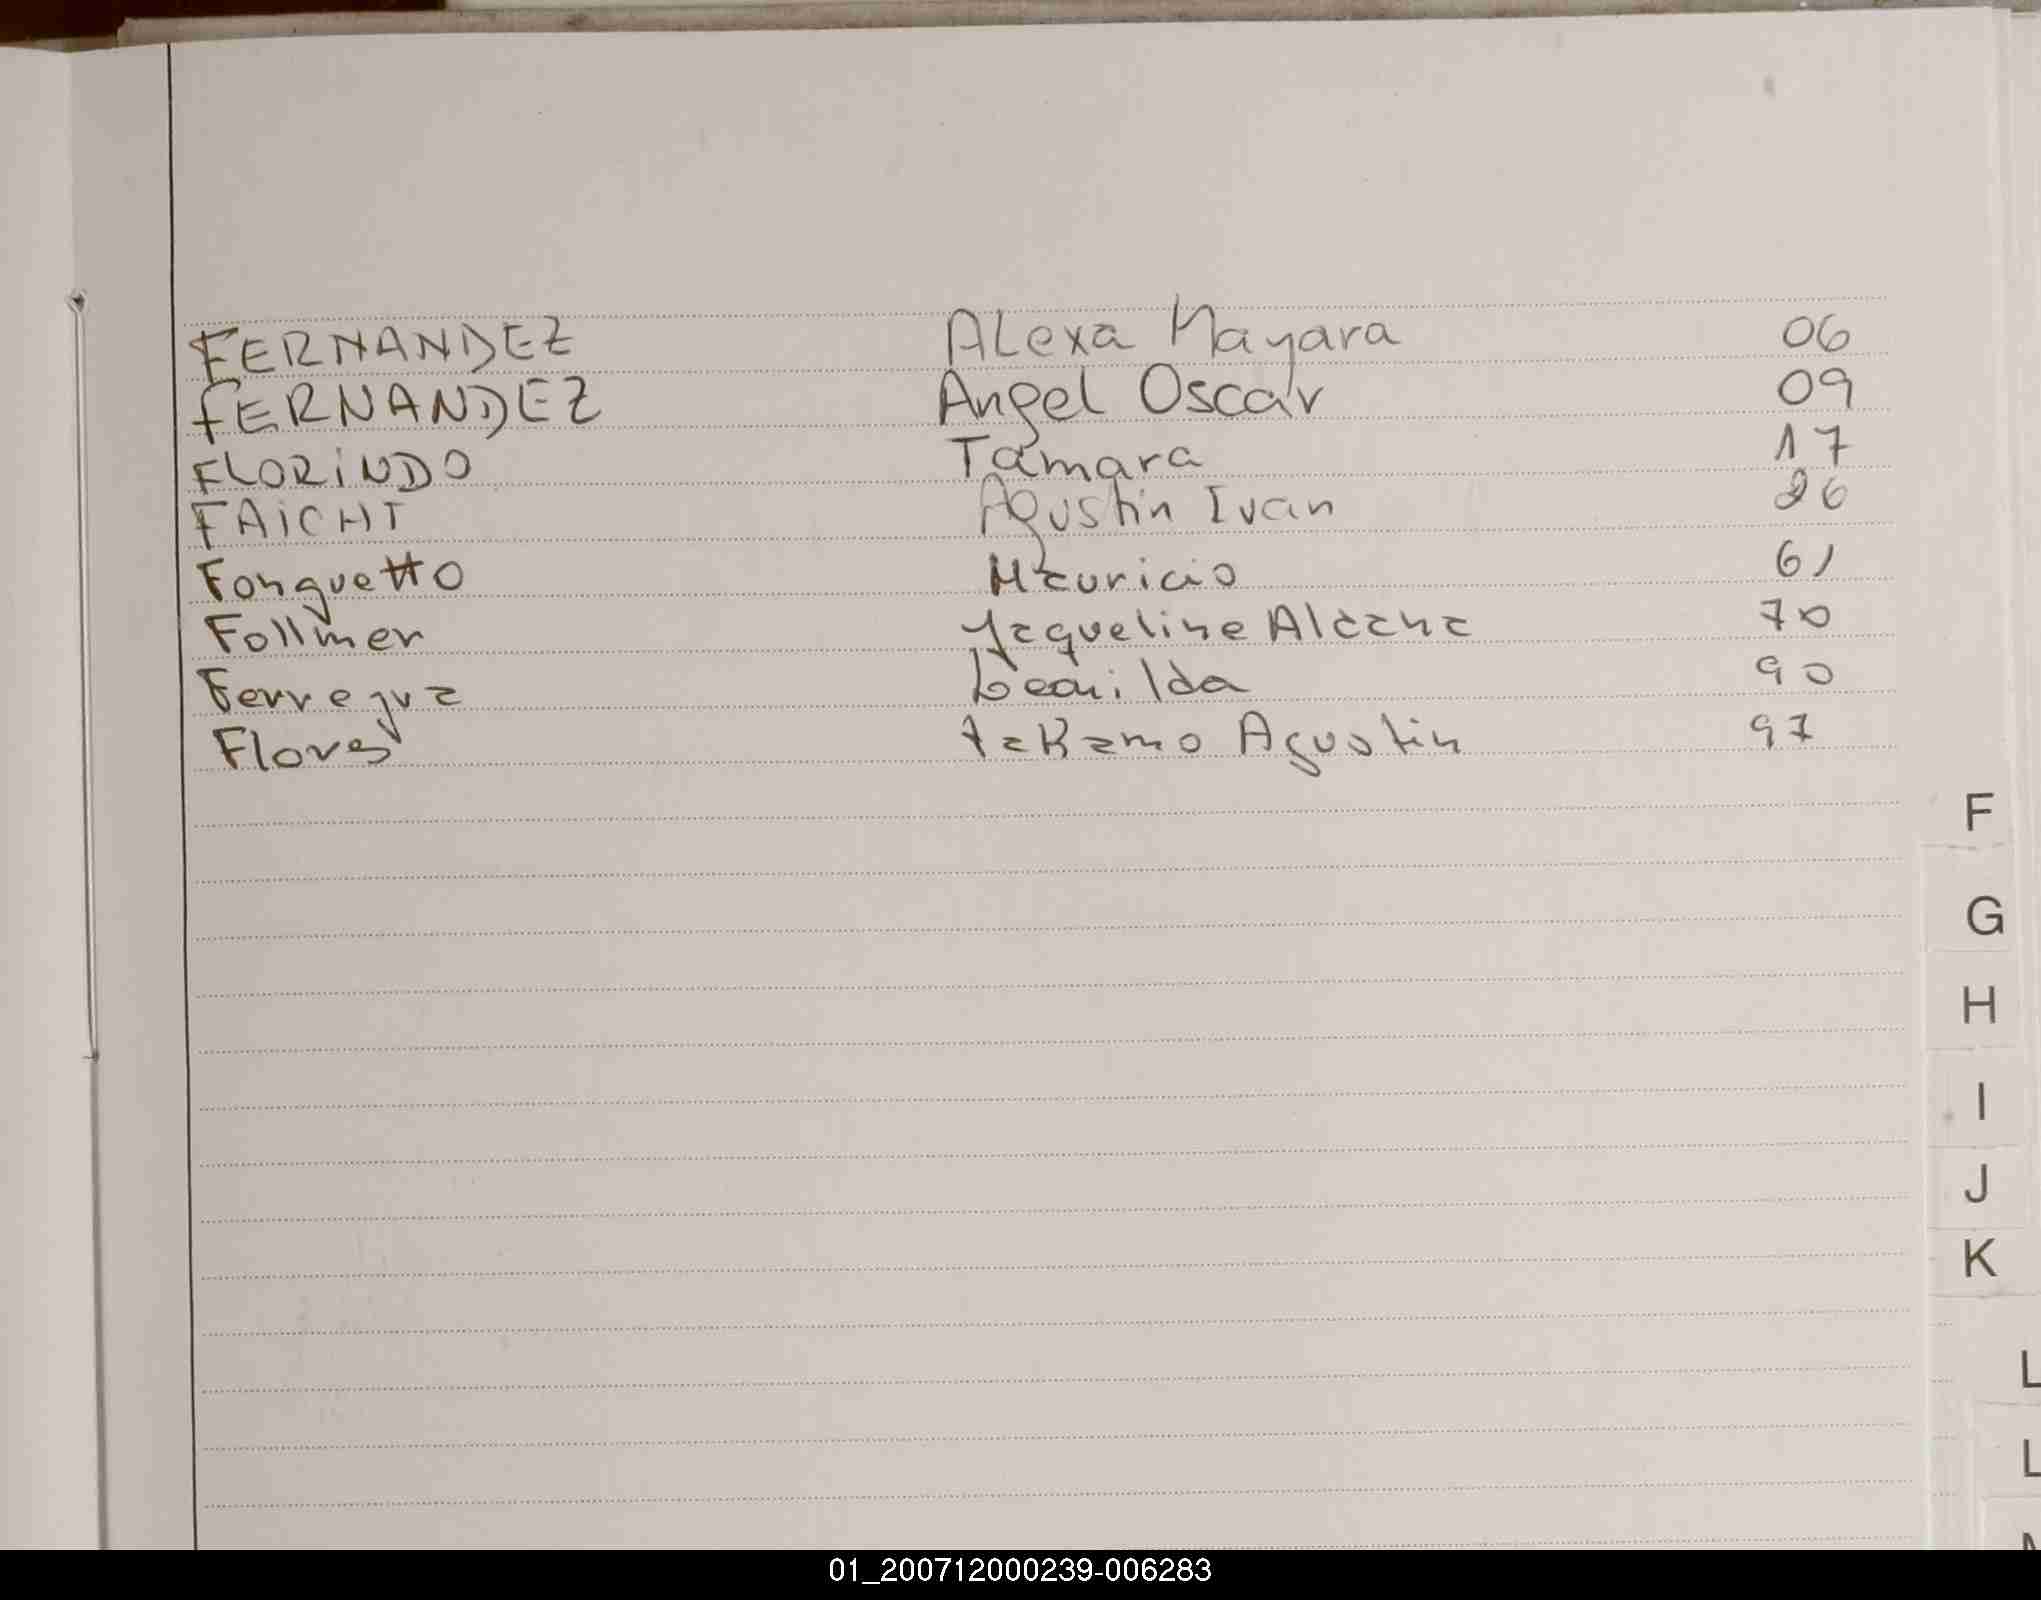 FERNANDEZ Alexa Mayara 06
FERNANDEZ Angel Oscar 09
FLORINDO Tamara 17
FAICHT Agustin Ivan 26
Fonguetto Mauricio 61
Follmer Jaqueline Aldana 70
Ferreyra Leonilda 90
Flores Agustin 97
F
G
H
I
J
K
L
L
01_200712000239-006283